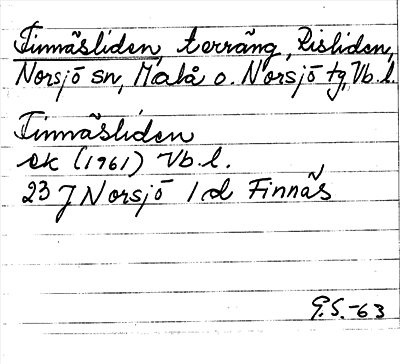 Finnäsliden, terräng, Risliden,
Norsjö sn, Malå o. Norsjö tg, Vb.l.
Finnäsliden
ek (1961) Vb.l.
23 J Norsjö 1d Finnäs
G.S.-63